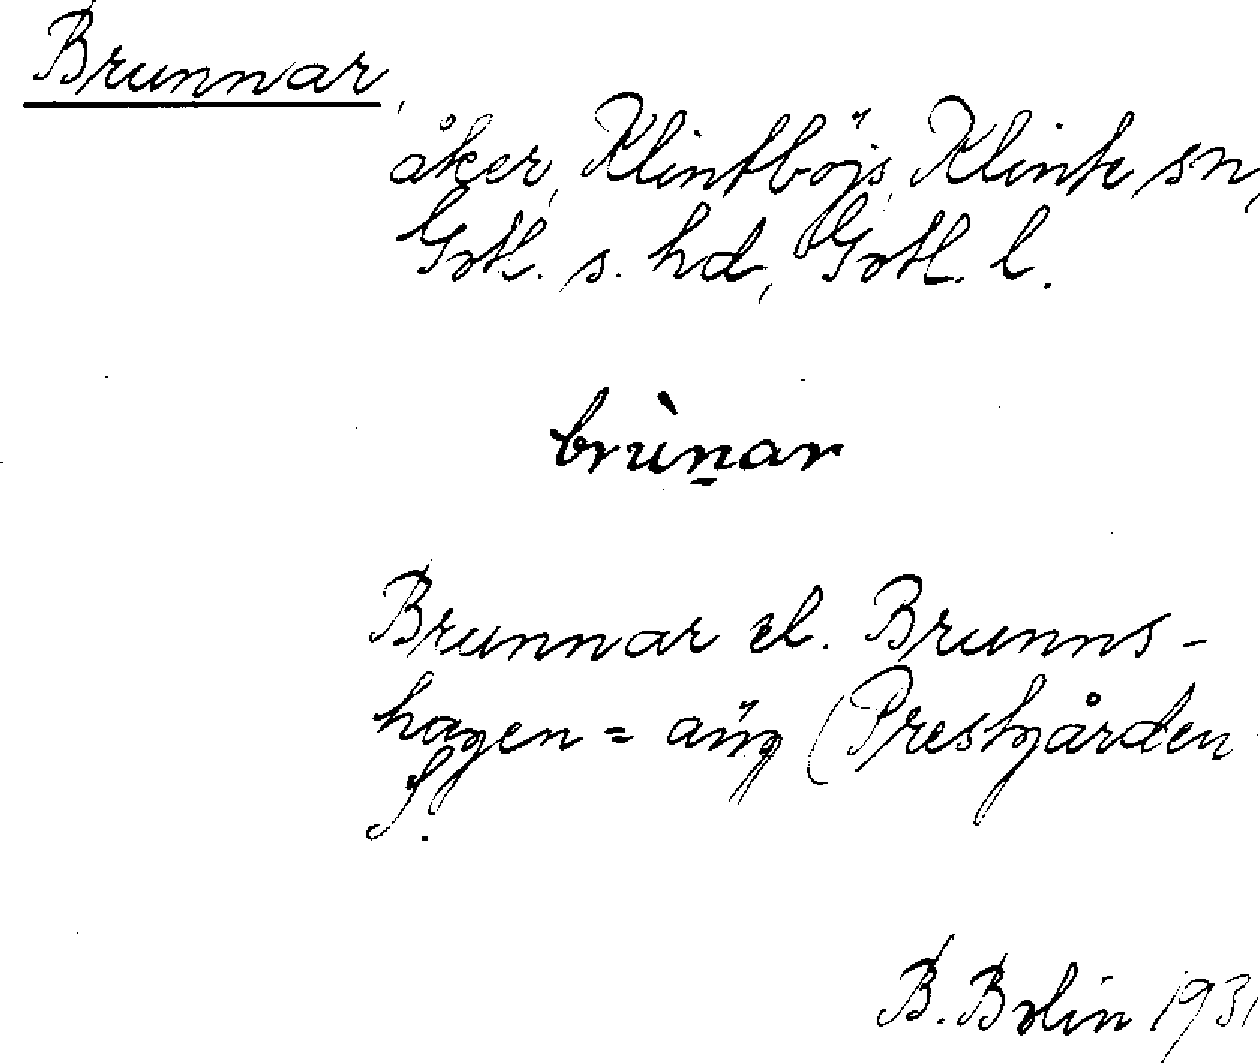 Brunnar,
åker, Klintböjs, Klinte sn,
Gotl. s. hd, Gotl. l.
brùn̠ar
Brunnar el. Brunns-
hagen = äng (Prestgården
f.
B. Bolin 1931